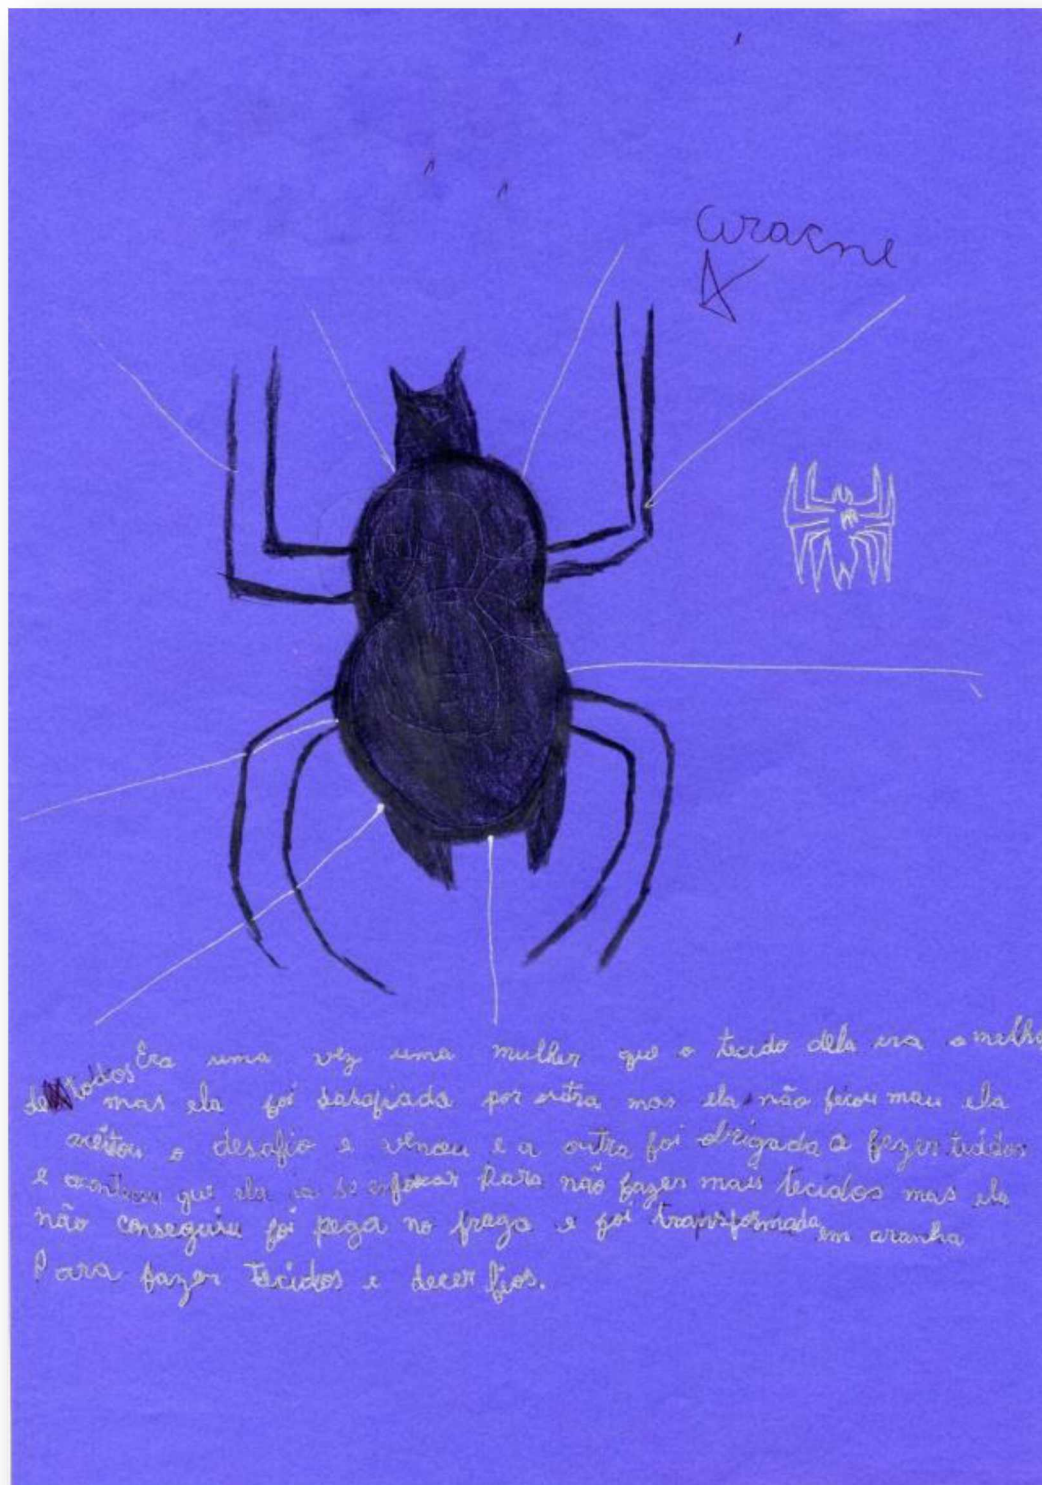 Aracne
Era uma vez uma mulher que o tecido dela era o melho
de todos mas ela foi desafiada por outra mas ela não ficou mau ela
aceitou o desafio e venceu e a outra foi obrigada a fazer tecidos
e aconteceu que ela ia se enforcar Para não fazer mais tecidos mas ela
não conseguiu foi pega no fraga e foi transformada em aranha
Para fazer tecidos e decer fios.